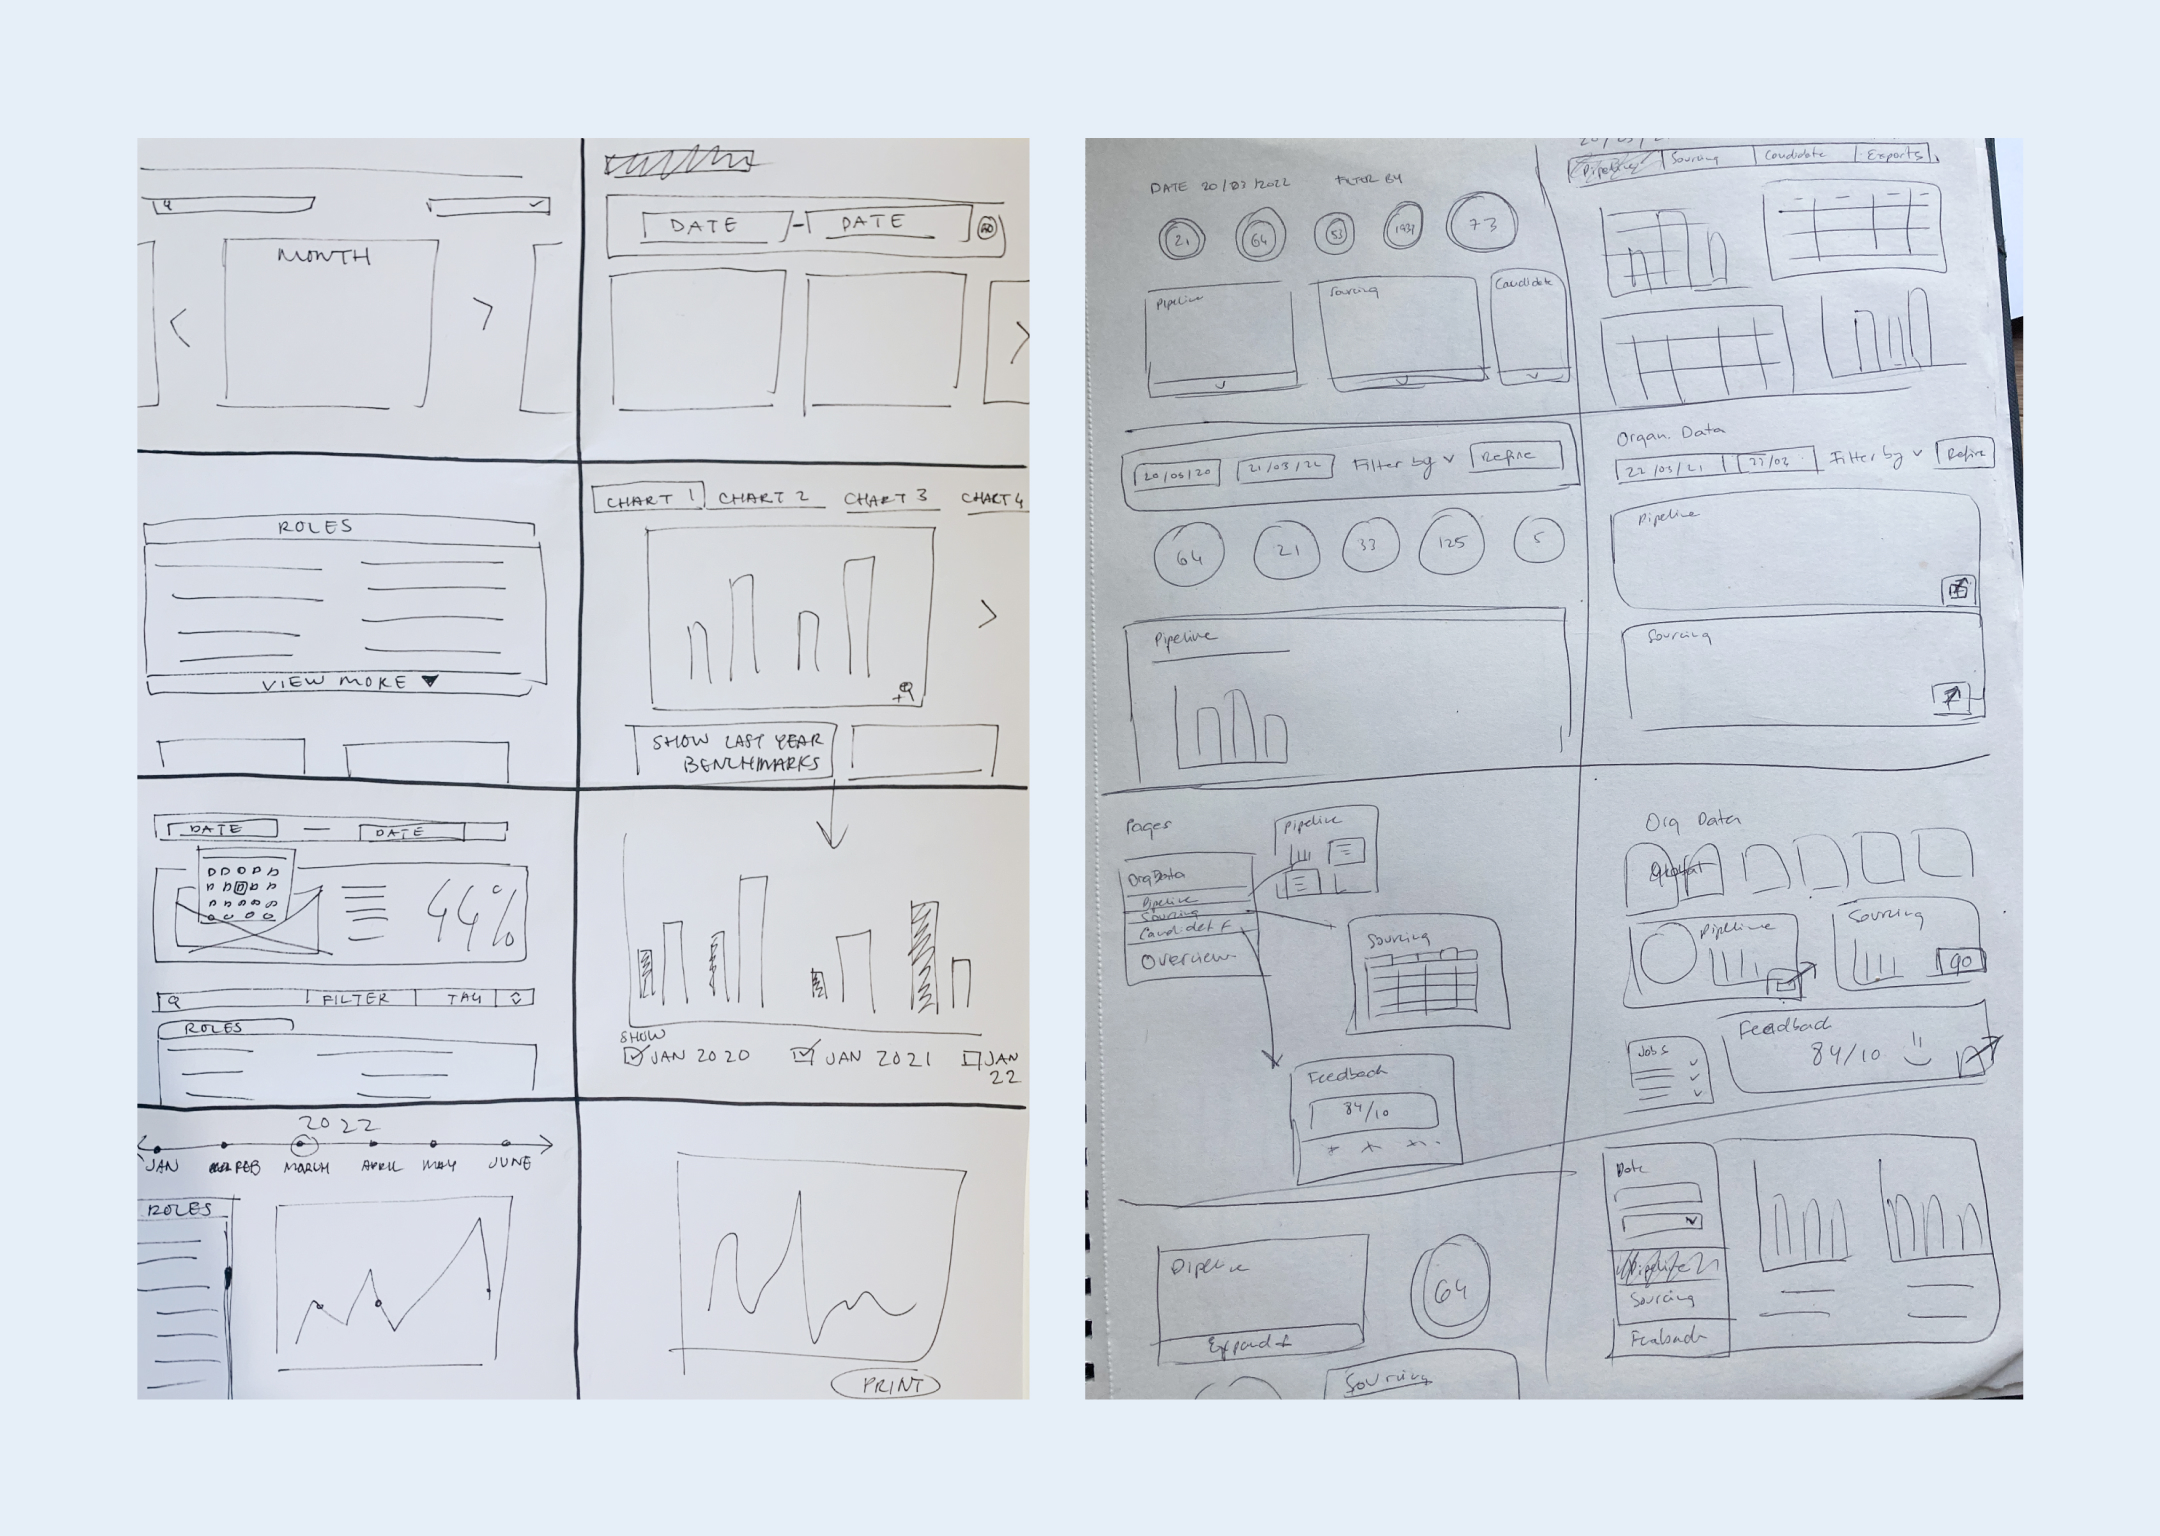 MONTH
DATE - DATE
GO
ROLES
VIEW MORE
CHART 1 CHART 2 CHART 3 CHART 4
SHOW LAST YEAR
BENCHMARKS
DATE — DATE
44%
FILTER TAG
ROLES
SHOW
JAN 2020 JAN 2021 JAN
22
2022
JAN FEB MARCH APRIL MAY JUNE
ROLES
PRINT
DATE 20/03/2022 FILTER BY
21 64 53 73
Pipeline Sourcing Candidate
Pipeline Sourcing Candidate Exports
20/05/20 21/03/22 Filter by Refine
64 21 33 125 5
Pipeline
Organ. Data
22/03/21 Filter by Refine
Pipeline
Sourcing
Pages
OrgData
Pipeline
Sourcing
Candidet F
Overview
Pipeline
Sourcing
Feedback
84/10
Org Data
Pipeline
Sourcing
GO
Jobs
Feedback
84/10
Pipeline
Expand +
64
Sourcing
Date
Pipeline
Sourcing
Feedback